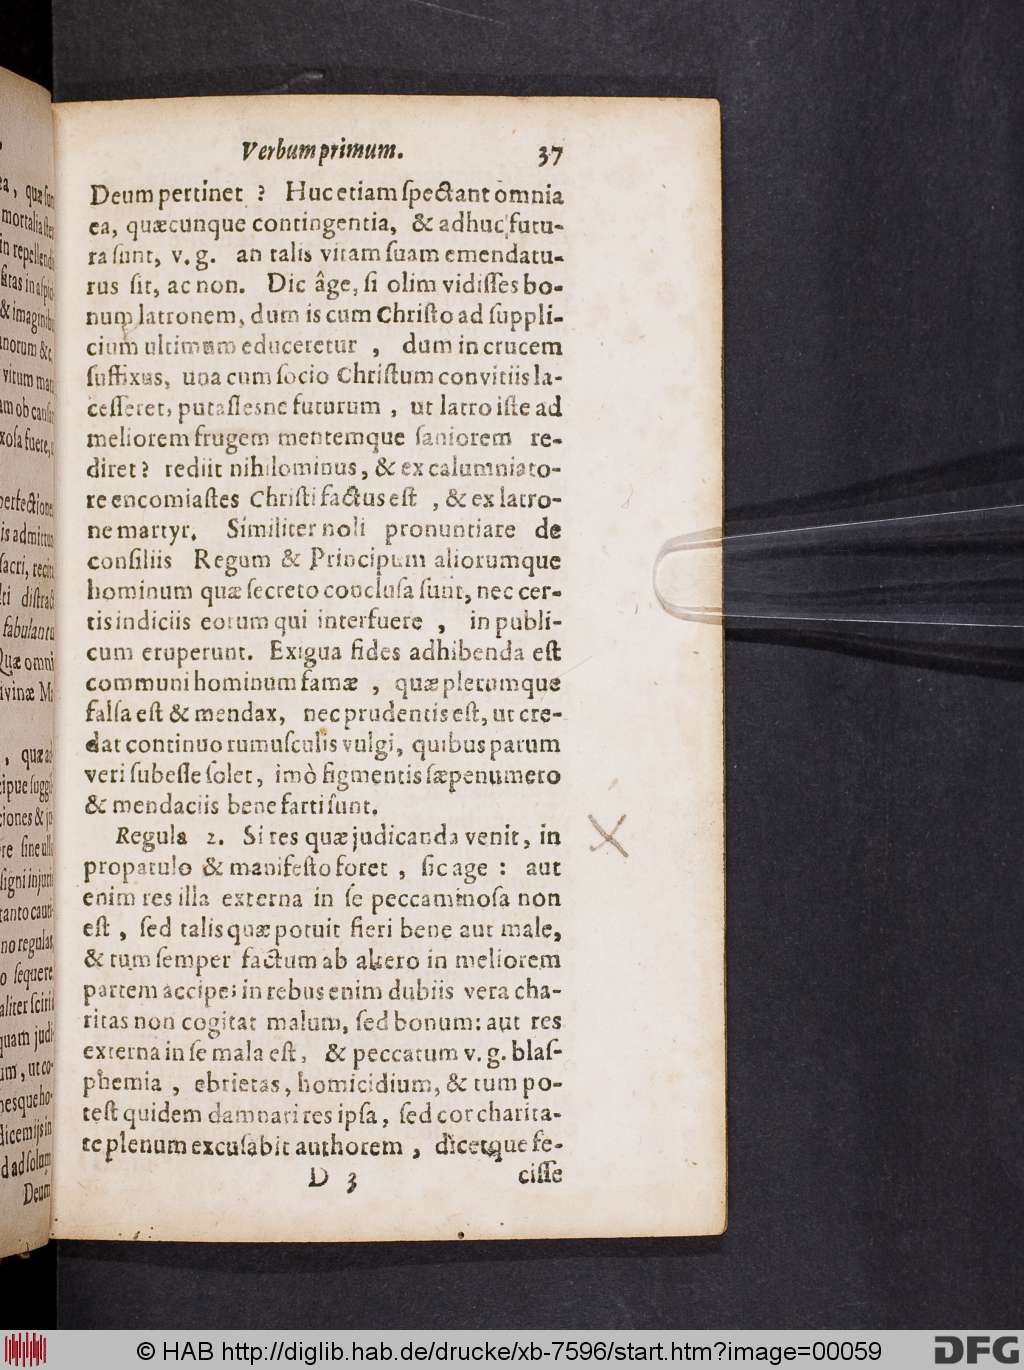 Verbum primum. 37
Deum pertinet ? Huc etiam ſpectant omnia
ea, quæcunque contingentia, & adhuc futu-
ra ſunt, v. g. an talis vitam ſuam emendatu-
rus ſit, ac non. Dic âge, ſi olim vidiſſes bo-
num latronem, dum is cum Chriſto ad ſuppli-
cium ultimum educeretur , dum in crucem
ſuffixus, una cum ſocio Chriſtum convitiis la-
ceſſeret, putaſſesne futurum , ut latro iſte ad
meliorem frugem mentemque ſaniorem re-
diret? rediit nihilominus, & ex calumniato-
re encomiaſtes Chriſti factus eſt , & ex latro-
ne martyr. Similiter noli pronuntiare de
conſiliis Regum & Principum aliorumque
hominum quæ ſecreto concluſa ſunt, nec cer-
tis indiciis eorum qui interfuere , in publi-
cum eruperunt. Exigua fides adhibenda eſt
communi hominum famæ , quæ plerumque
falſa eſt & mendax, nec prudentis eſt, ut cre-
dat continuo rumuſculis vulgi, quibus parum
veri ſubeſſe ſolet, imò figmentis ſæpenumero
& mendaciis bene farti ſunt.
Regula 2. Si res quæ judicanda venit, in
propatulo & manifeſto foret , ſic age : aut
enim res illa externa in ſe peccaminoſa non
eſt , ſed talis quæ potuit fieri bene aut male,
& tum ſemper factum ab altero in meliorem
partem accipe; in rebus enim dubiis vera cha-
ritas non cogitat malum, ſed bonum: aut res
externa in ſe mala eſt, & peccatum v. g. blaſ-
phemia , ebrietas, homicidium, & tum po-
teſt quidem damnari res ipſa, ſed cor charita-
te plenum excuſabit authorem , dicetque fe-
D 3 ciſſe
ea, quæ ſunt
mortalia
in repellendis
& imagin
norum &c.
vitum
am ob
xoſa fuere,
perfectiones
is admittun
ſacri,
fabulantu
Quæ omni
ivinæ
, quæ ad
cipue
ciones &
re ſine
ſigni
tanto
no regulas
o ſequere
aliter
quam judi
um, ut co-
nesque ho-
dicem ijs in
d ad ſolum
Deum
© HAB http://diglib.hab.de/drucke/xb-7596/start.htm?image=00059
DFG